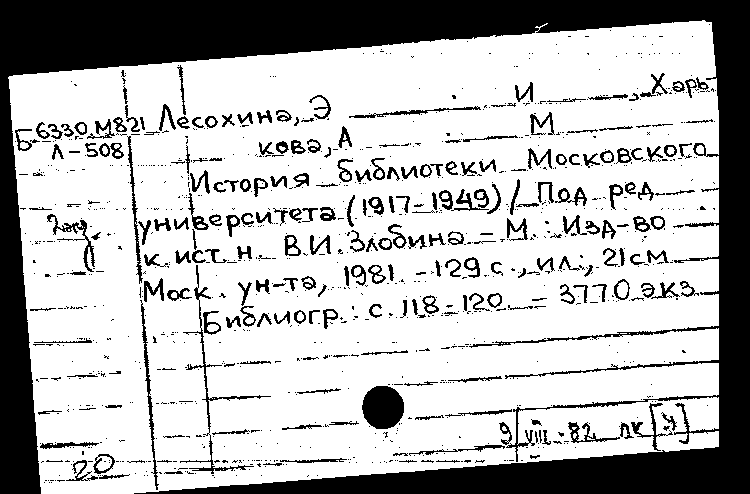 Б6330.М821 Лесохина, Э. И., Харь-
Л-508 кова, А. М.
История библиотеки Московского
университета (1917-1949) / Под ред
2экз
к. ист. н. В.И. Злобина – М.: Изд-во
Моск. ун-та, 1981. – 129 с., ил.; 21 см
Библиогр.: с. 118-120. – 3770 экз
9/VIII-82 пк [У]
20